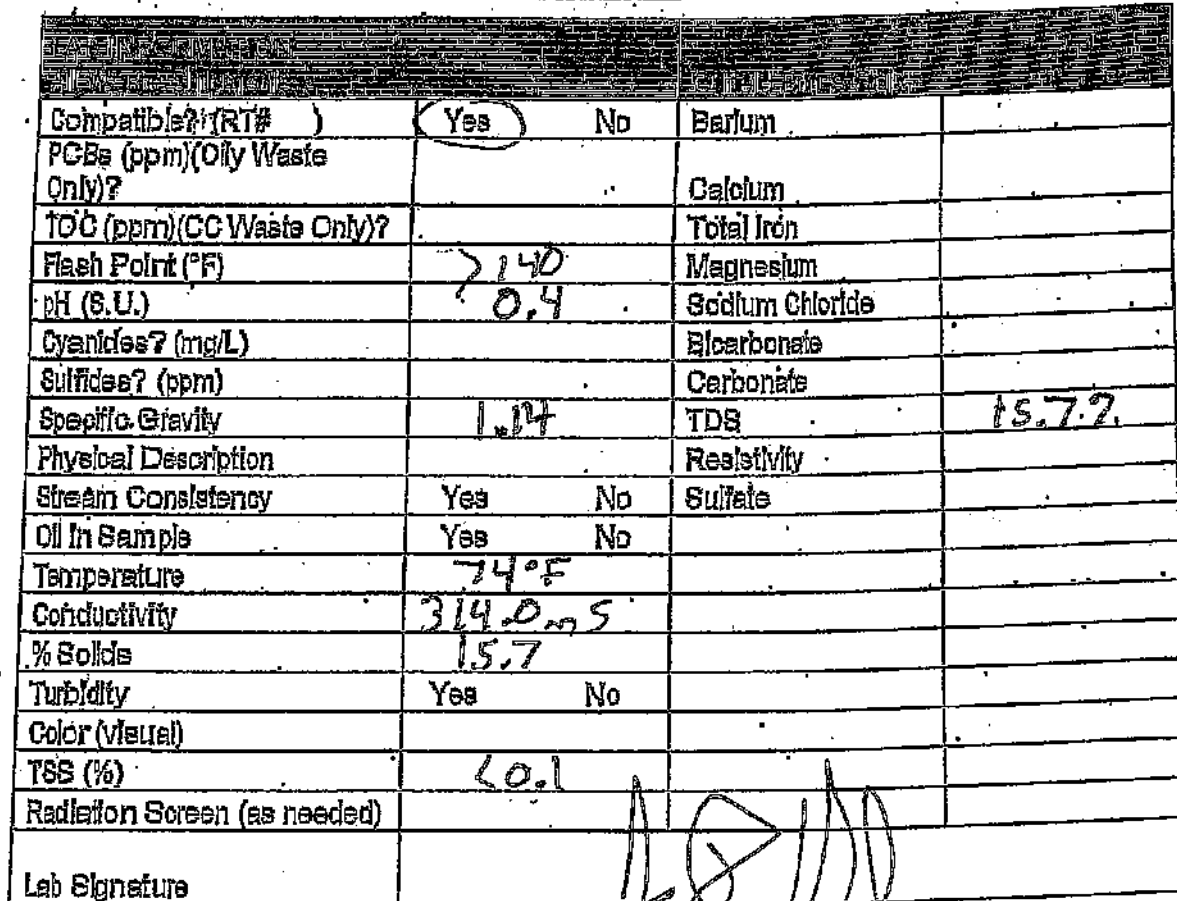 Compatible? (RT# ) Yes No Barium
PCBs (ppm)(Oily Waste
Only)? Calcium
TOC (ppm)(CC Waste Only)? Total Iron
Flash Point (°F) >140 Magnesium
pH (S.U.) 0.4 Sodium Chloride
Cyanides? (mg/L) Bicarbonate
Sulfides? (ppm) Carbonate
Specific Gravity 1.14 TDS 15.7
Physical Description Resistivity
Stream Consistency Yes No Sulfate
Oil In Sample Yes No
Temperature 74°F
Conductivity 314.0 mS
% Solids 15.7
Turbidity Yes No
Color (visual)
TSS (%) <0.1
Radiation Screen (as needed)
Lab Signature